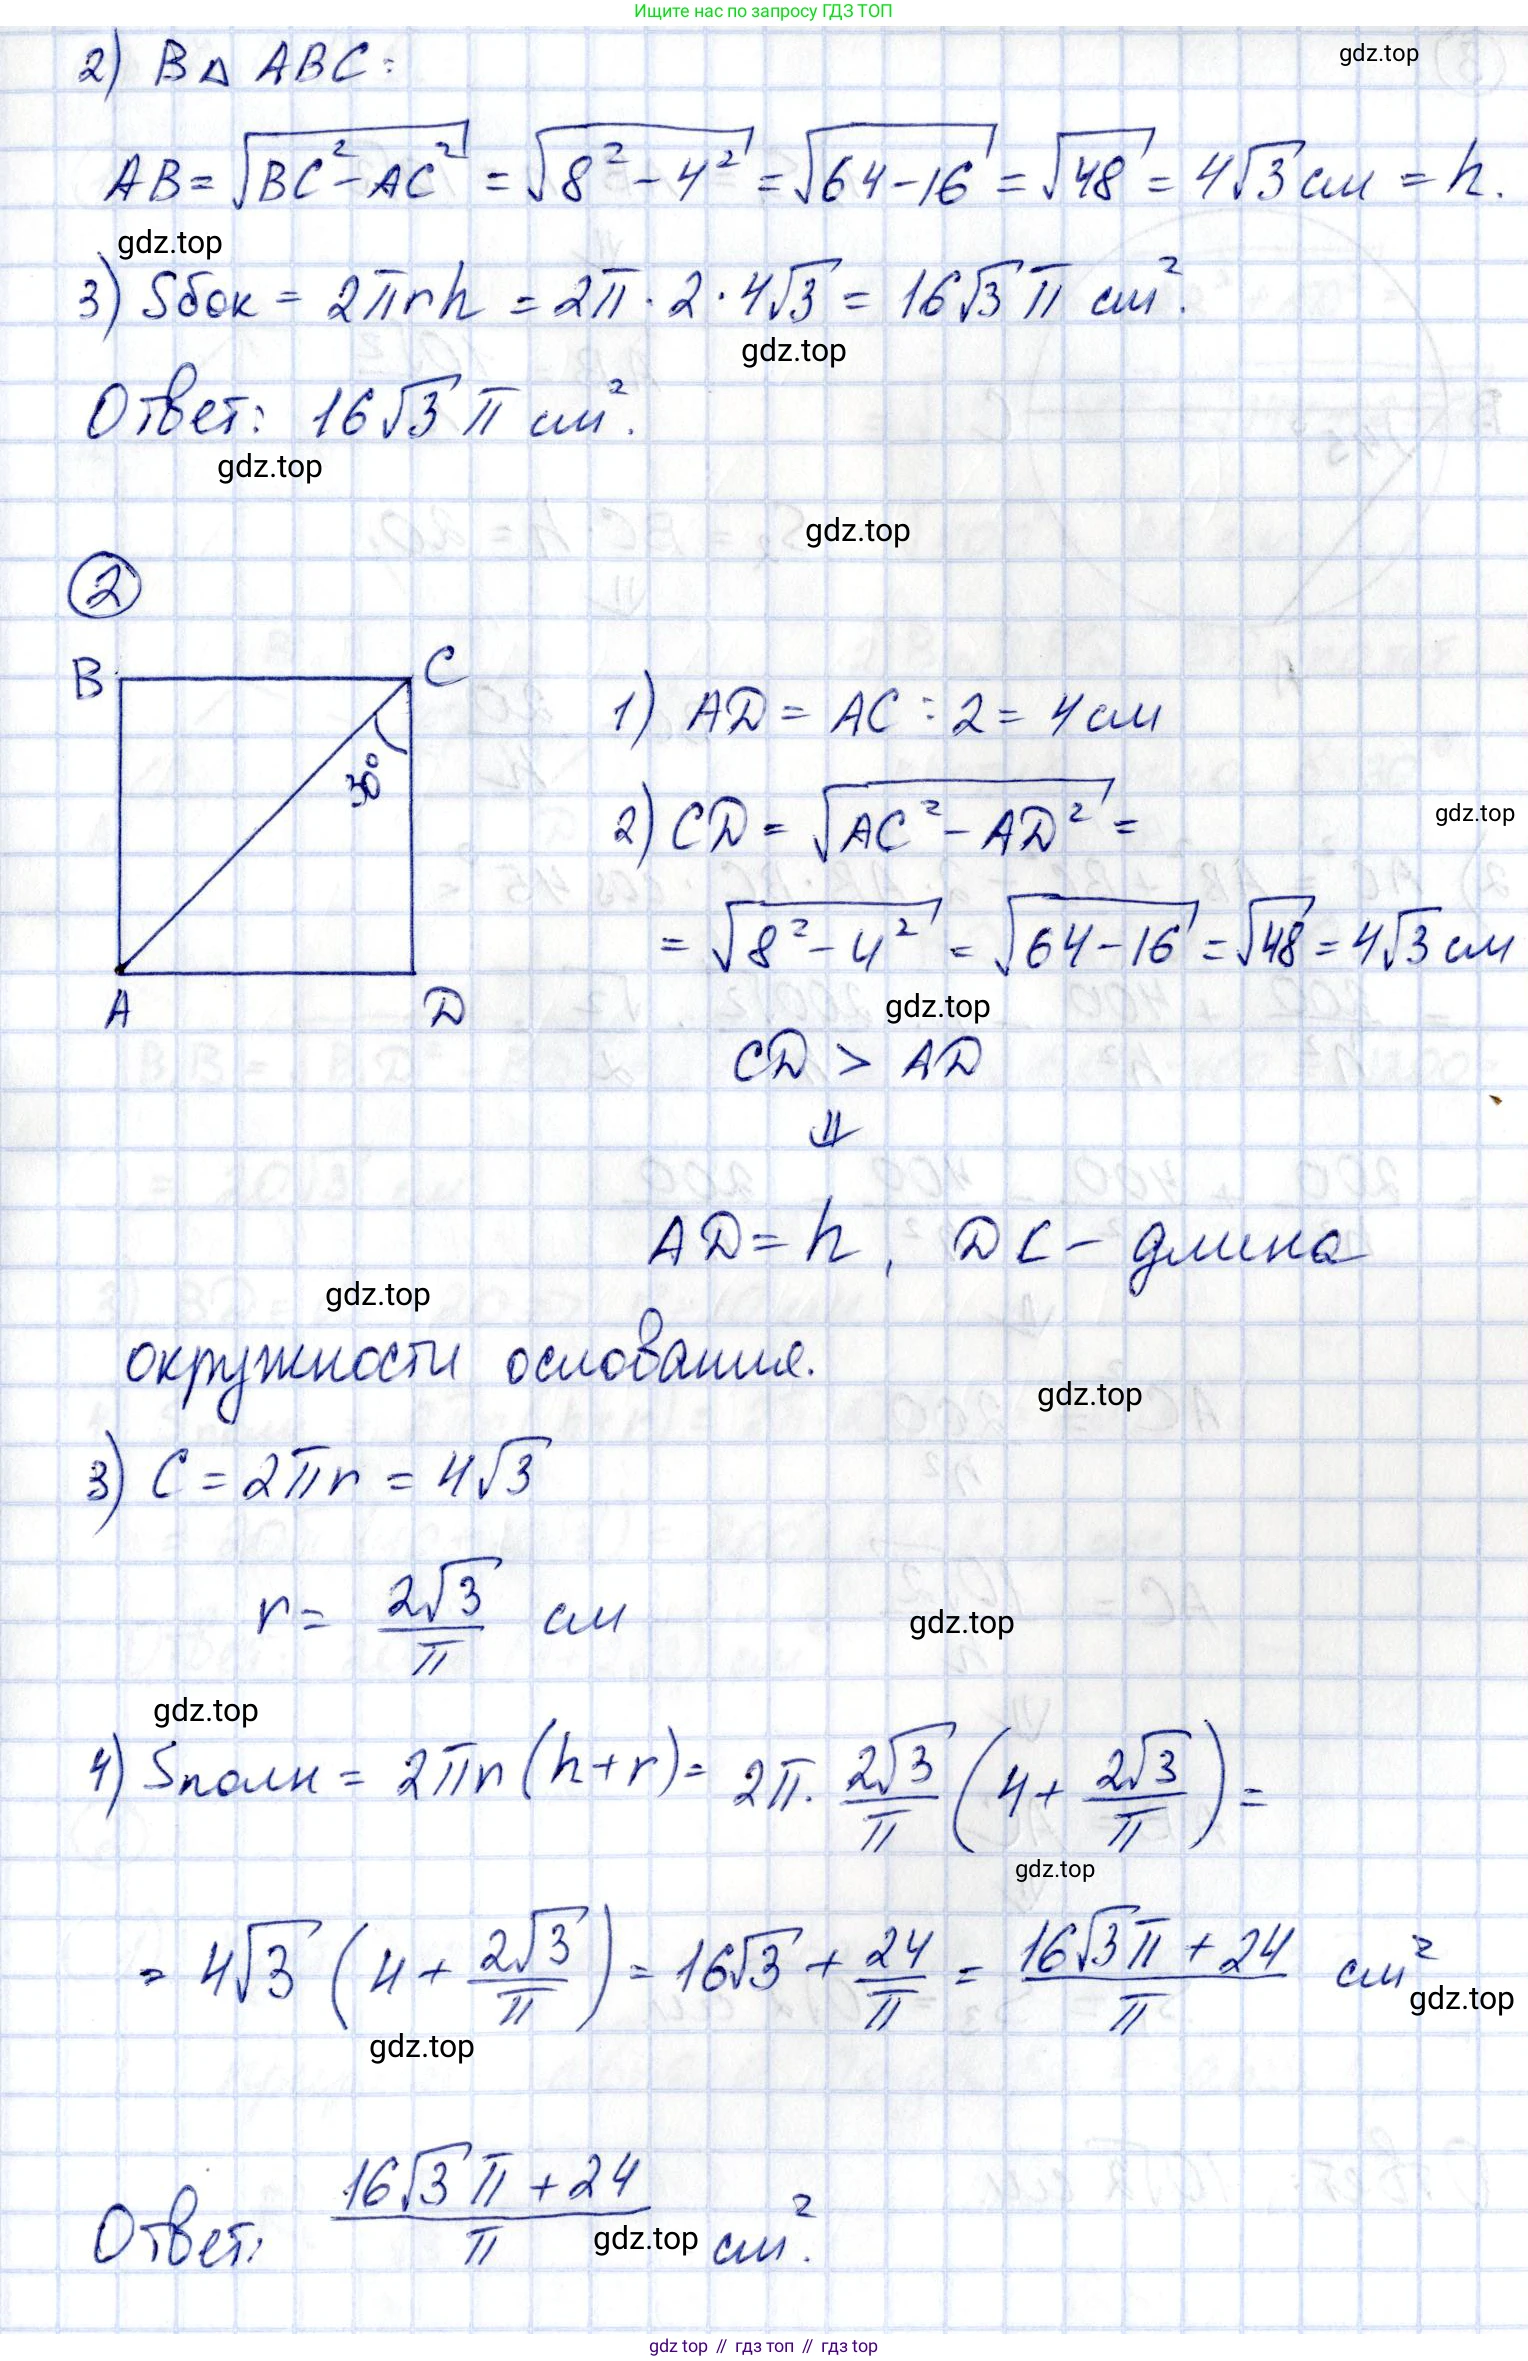 Ищите нас по запросу ГДЗ ТОП
2) В △ ABC:
gdz.top
AB = √(BC² - AC²) = √(8² - 4²) = √(64 - 16) = √48 = 4√3 см = h.
gdz.top
3) Sбок = 2πrh = 2π · 2 · 4√3 = 16√3 π см².
gdz.top
Ответ: 16√3 π см².
gdz.top
gdz.top
2
B C
30°
A D
1) AD = AC : 2 = 4 см
2) CD = √(AC² - AD²) =
gdz.top
= √(8² - 4²) = √(64 - 16) = √48 = 4√3 см
gdz.top
CD > AD
⇓
AD = h, DC - длина
gdz.top
окружности основания.
gdz.top
3) C = 2πr = 4√3
r = 2√3/π см
gdz.top
gdz.top
4) Sполн = 2πr(h + r) = 2π · 2√3/π (4 + 2√3/π) =
gdz.top
= 4√3 (4 + 2√3/π) = 16√3 + 24/π = (16√3π + 24)/π см²
gdz.top
gdz.top
Ответ: (16√3 π + 24)/π см².
gdz.top
gdz.top // гдз топ // гдз top